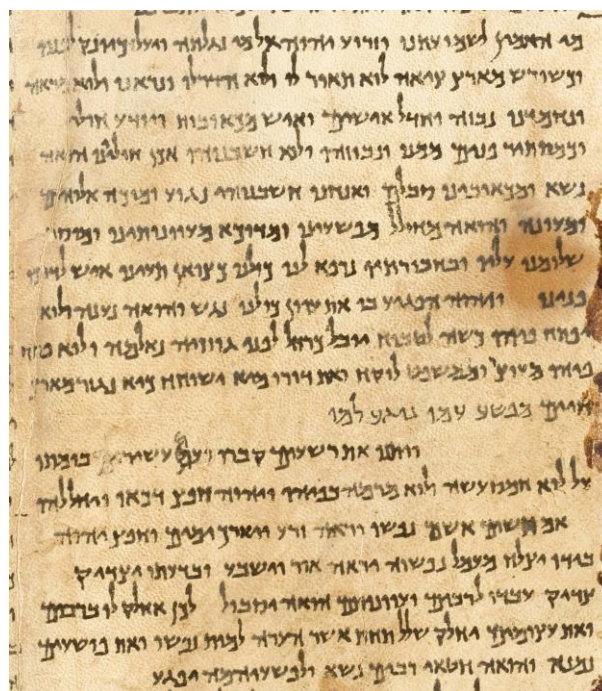 מי האמין לשמועתנו וזרוע יהוה אל מי נגלתה ויעל כיונק לפניו
וכשורש מארץ ציאה לוא תואר לו ולוא הדר לו ונראנו ולוא מראה
ונחמדנו נבזה וחדל אישים ואיש מכאובות ויודע חולי
וכמסתיר פנים ממנו ונבוזהו ולוא חשבנוהו אכן חוליינו הואה
נשא ומכאובינו סבלם ואנחנו חשבנוהו נגוע ומוכה אלוהים
ומעונה והואה מחולל מפשעינו ומדוכא מעוונותינו ומוסר
שלומנו עליו ובחבורתיו נרפא לנו כולנו כצואן תעינו איש לדרכו
פנינו ויהוה הפגיע בו את עוון כולנו נגש והואה נענה ולוא
יפתח פיהו כשה לטבוח יובל כרחל לפני גוזזיה נאלמה ולוא פתח
פיהו מעוצר וממשפט לוקח ואת דורו מיא ישוחח כיא נגזר מארץ
חיים מפשע עמו נוגע למו
ויתנו את רשעים קברו ועם עשירים בומתו
על לוא חמס עשה ולוא מרמה בפיהו ויהוה חפץ דכאו ויחללהו
אם תשים אשם נפשו יראה זרע ויארך ימים וחפץ יהוה
בידו יצלח מעמל נפשוה יראה אור וישבע ובדעתו יצדיק
צדיק עבדו לרבים ועוונותם הואה יסבול לכן אחלק לו ברבים
ואת עצומים יחלק שלל תחת אשר הערה למות נפשו ואת פושעים
נמנה והואה חטאי רבים נשא ולפשעיהמה יפגע